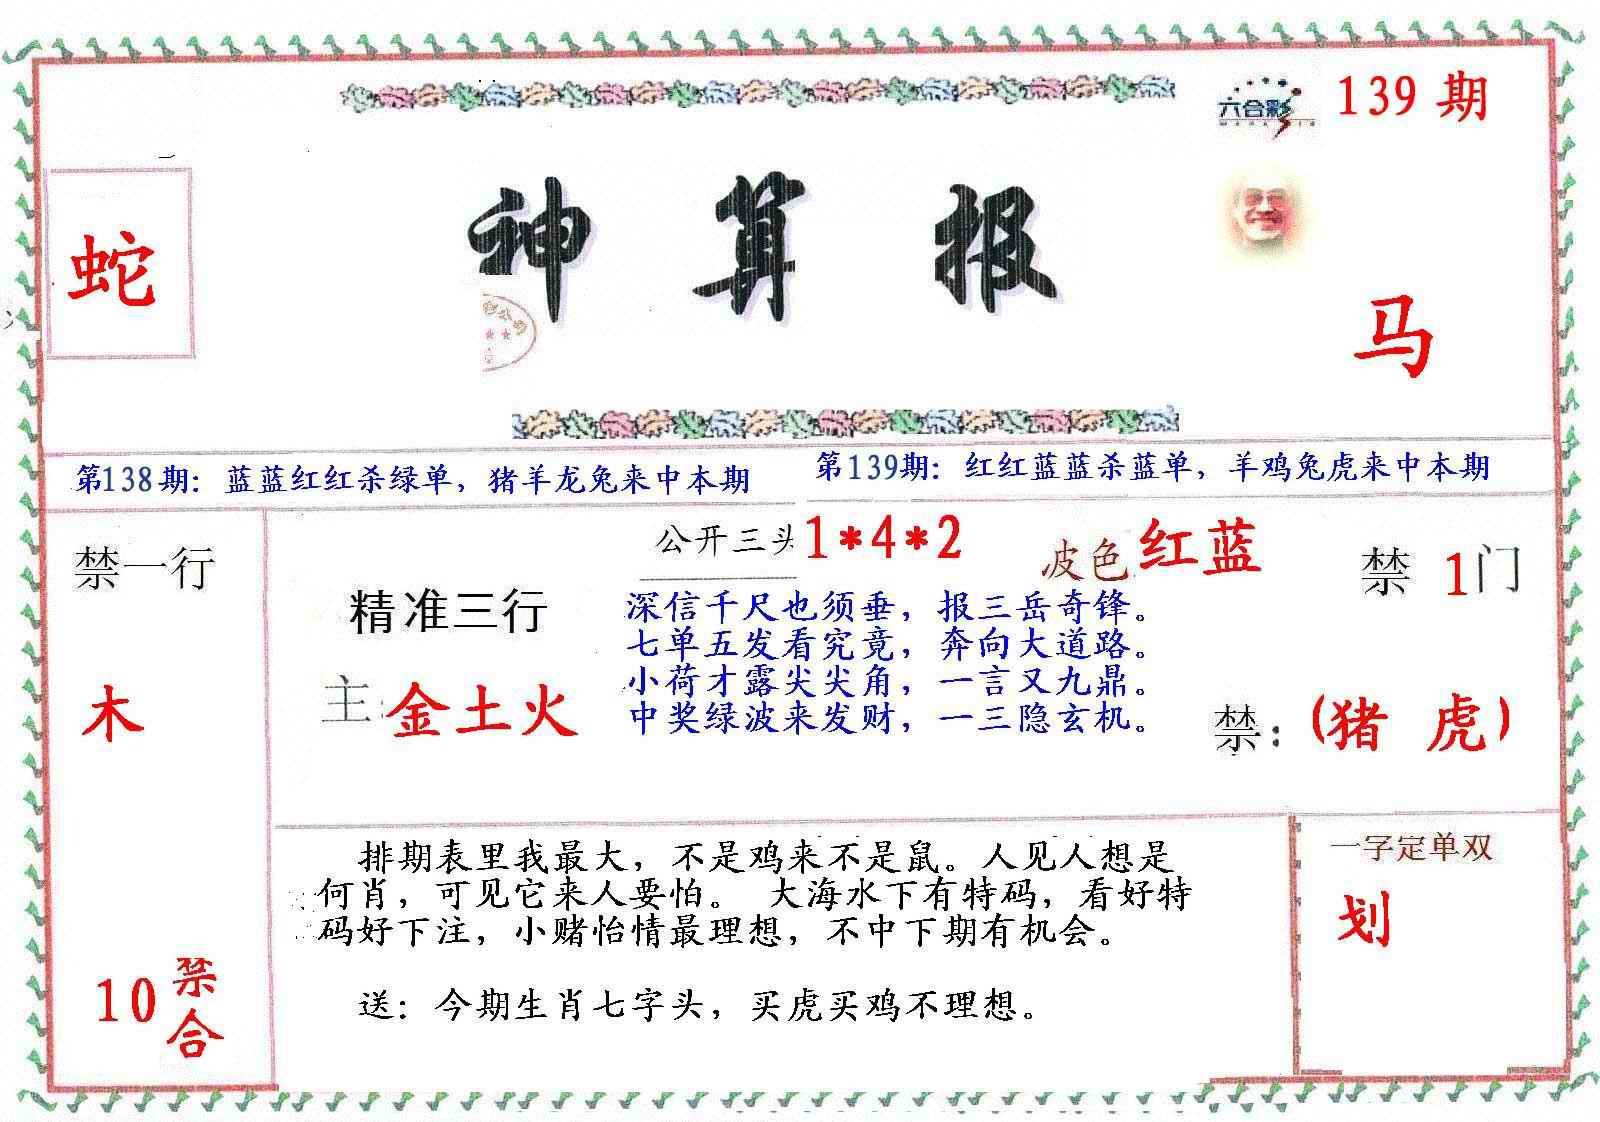 六合彩
139 期
蛇
神算报
马
第138期：蓝蓝红红杀绿单，猪羊龙兔来中本期
第139期：红红蓝蓝杀蓝单，羊鸡兔虎来中本期
禁一行
木
10 禁合
精准三行
主：金土火
公开三头 1*4*2
波色 红蓝
深信千尺也须垂，报三岳奇锋。
七单五发看究竟，奔向大道路。
小荷才露尖尖角，一言又九鼎。
中奖绿波来发财，一三隐玄机。
禁 1门
禁：(猪 虎)
排期表里我最大，不是鸡来不是鼠。人见人想是
何肖，可见它来人要怕。 大海水下有特码，看好特
码好下注，小赌怡情最理想，不中下期有机会。
送：今期生肖七字头，买虎买鸡不理想。
一字定单双
划